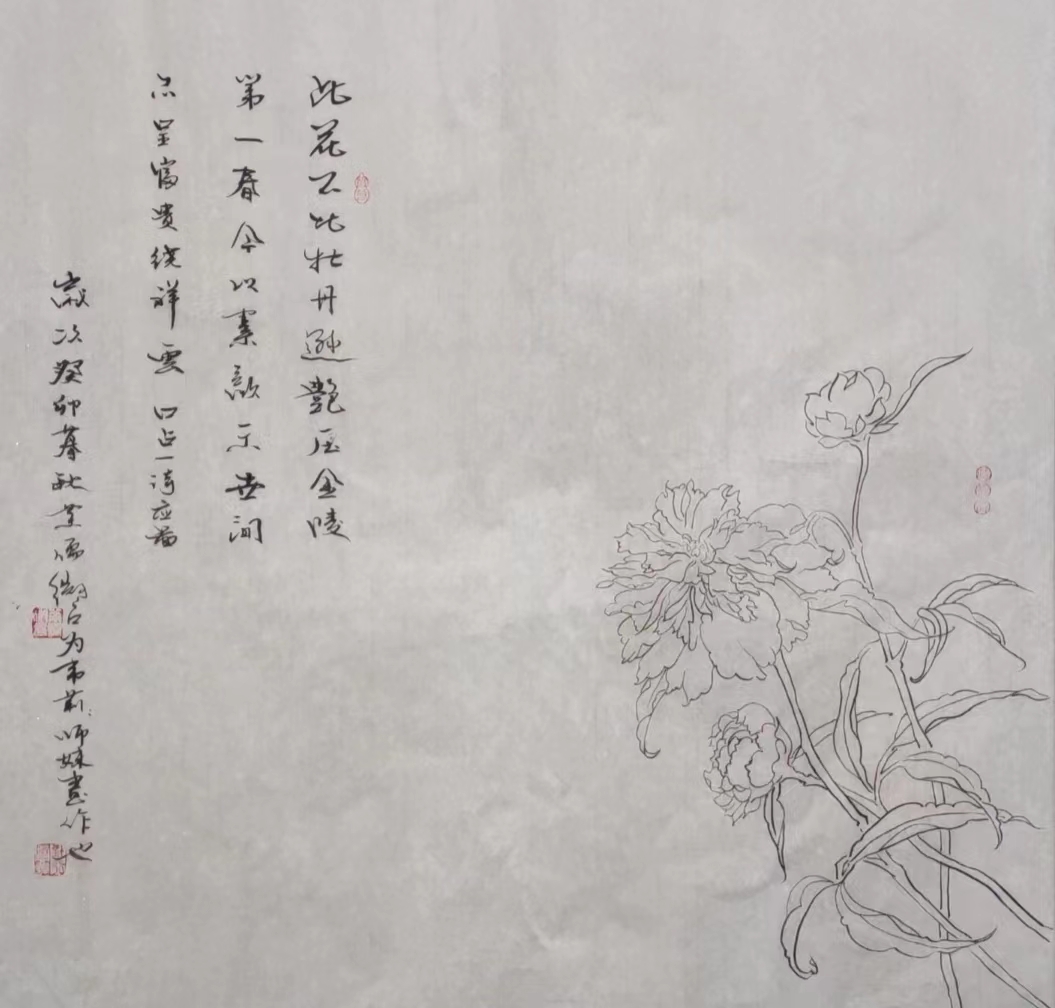 此花不比牡丹逊艳压金陵
第一春今以素颜示世间
亦呈富贵绕祥云口占一诗应器
岁次癸卯暮秋 为韦莉师妹画作也